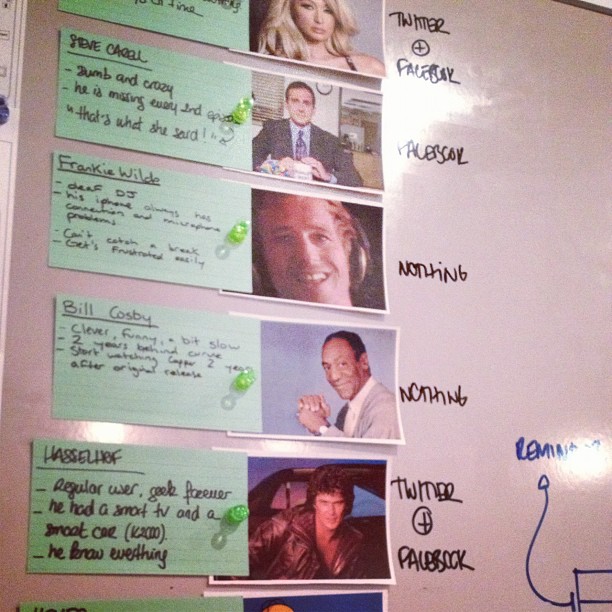 of time
TWITTER
+
FACEBOOK
STEVE CAREL
- Dumb and crazy
- he is missing every 2nd episo
"that's what she said!"
FACEBOOK
Frankie Wilde
- deaf DJ
- his iphone always has
connection and microphone
problems.
- Can't catch a break
- Get's frustrated easily
NOTHING
Bill Cosby
- Clever, funny, a bit slow
- 2 years behind curve
- Start watching Capper 2 years
after original release
NOTHING
HASSELHOF
- Regular user, geek forever
- he had a smart tv and a
smart car (K2000).
- he know everything
TWITTER
+
FACEBOOK
REMIN